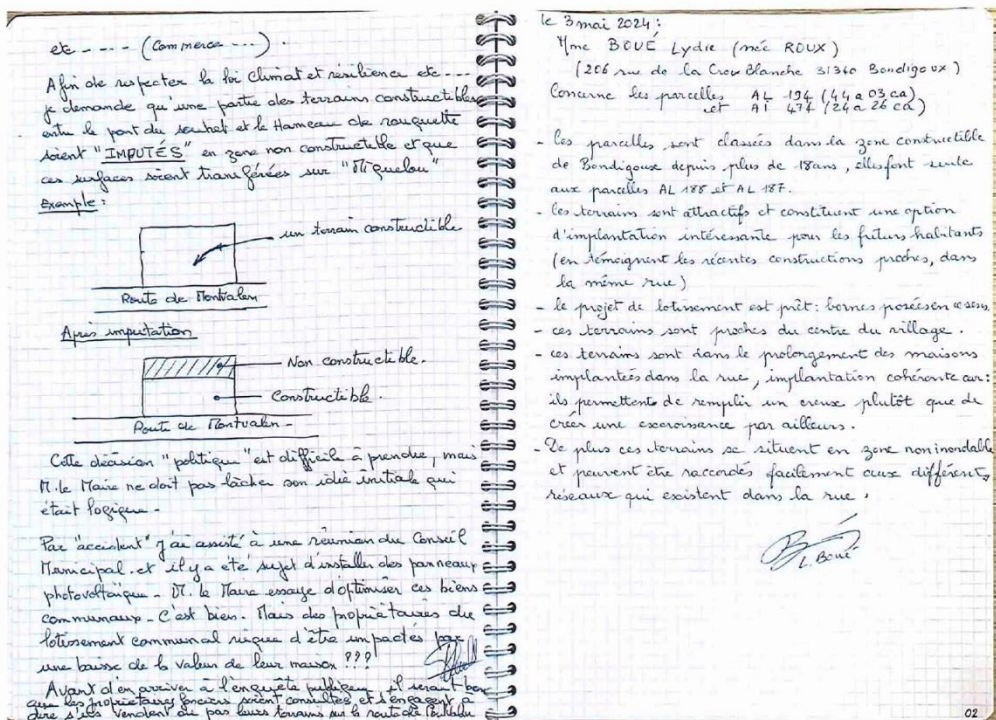 etc - - - - (Commerce ---).
Afin de respecter la loi Climat et résilience etc ---
je demande qu'une partie des terrains constructibles
entre le pont du souhet et le Hameau de rouquette
soient "IMPUTÉS" en zone non constructible et que
ces surfaces soient transférées sur "Miquelou"
Exemple :
un terrain constructible
Route de Montvalen
Après imputation
Non constructible.
Constructible.
Route de Montvalen -
Cette décision "politique" est difficile à prendre, mais
M. le Maire ne doit pas lâcher son idée initiale qui
était logique -
Par "accident" j'ai assisté à une réunion du Conseil
Municipal. et il y a été sujet d'installer des panneaux
photovoltaïque - M. le Maire essaye d'optimiser ces biens
communaux - C'est bien. Mais des propriétaires du
lotissement communal risque d'être impactés par
une baisse de la valeur de leur maison ???
Avant d'en arriver à l'enquête publique, il serait bon
que les propriétaires fonciers soient consultés et s'engagent à
dire s'ils vendent ou pas leurs terrains sur la route de
le 3 mai 2024 :
Mme BOUÉ Lydie (née ROUX)
(206 rue de la Croix Blanche 31340 Bondigoux)
Concerne les parcelles AL 194 (44a 03ca)
et AI 474 (24a 26ca)
- les parcelles sont classées dans la zone constructible
de Bondigoux depuis plus de 18ans, elles font suite
aux parcelles AL 188 et AL 187.
- les terrains sont attractifs et constituent une option
d'implantation intéressante pour les futurs habitants
(en témoignent les récentes constructions proches, dans
la même rue)
- le projet de lotissement est prêt : bornes posées en ce sens.
- ces terrains sont proches du centre du village.
- ces terrains sont dans le prolongement des maisons
implantées dans la rue, implantation cohérente car :
ils permettent de remplir un creux plutôt que de
créer une excroissance par ailleurs.
- De plus ces terrains se situent en zone non inondable
et peuvent être raccordés facilement aux différents
réseaux qui existent dans la rue.
L. Boué
02